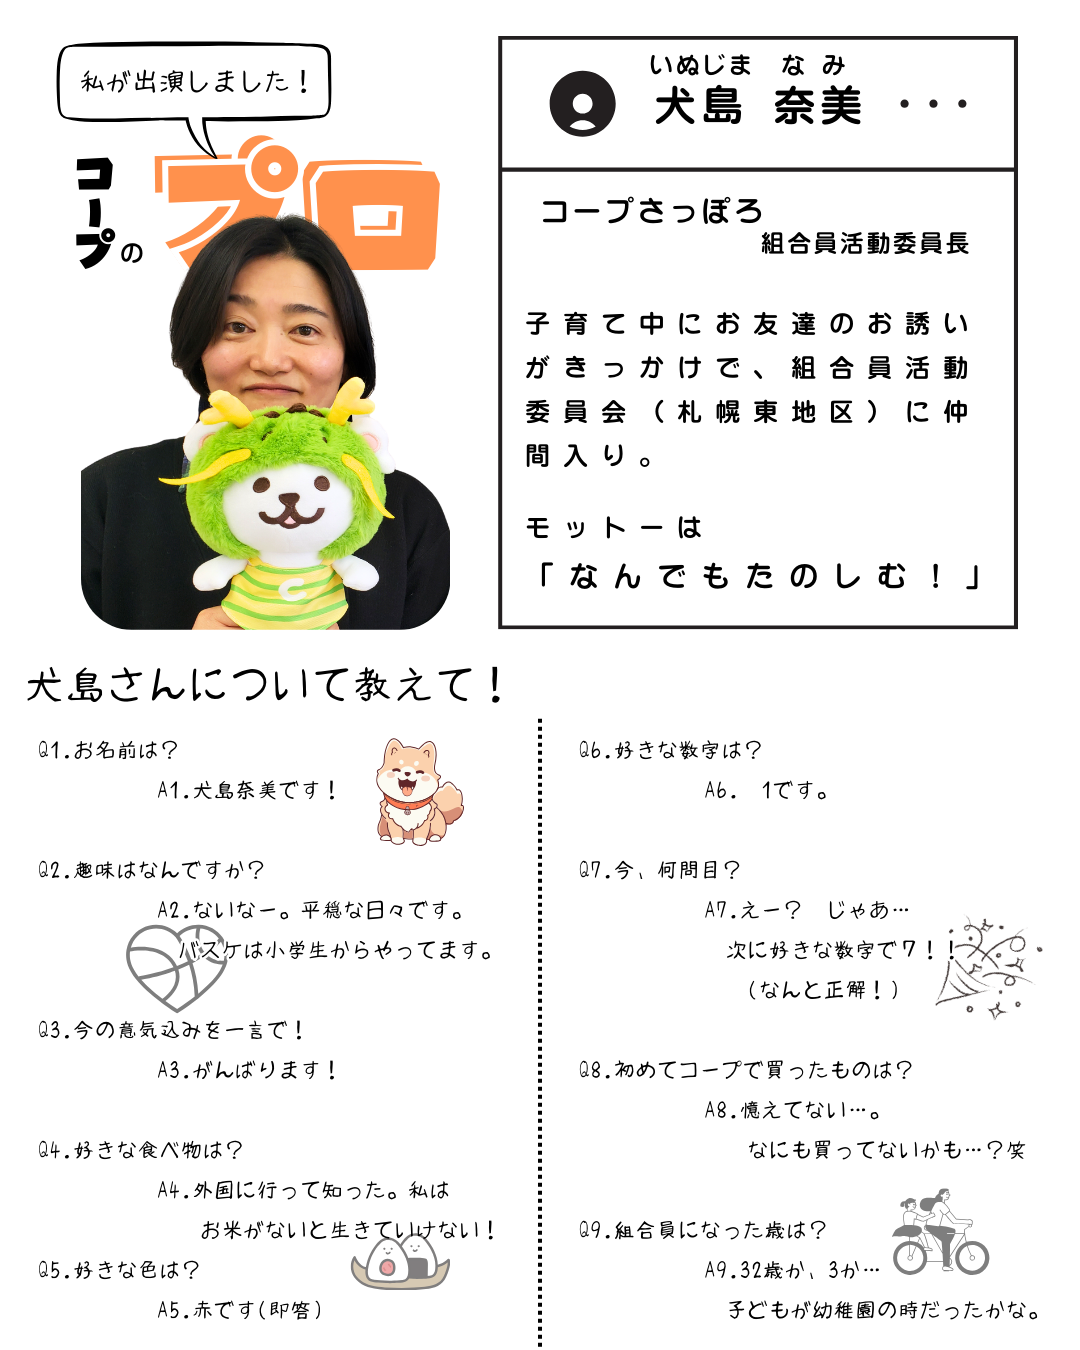 私が出演しました！
コープの
プロ
いぬじま なみ
犬島 奈美 ・・・
コープさっぽろ
組合員活動委員長
子育て中にお友達のお誘い
がきっかけで、組合員活動
委員会（札幌東地区）に仲
間入り。
モットーは
「なんでもたのしむ！」
C
犬島さんについて教えて！
Q1.お名前は？
A1.犬島奈美です！
Q2.趣味はなんですか？
A2.ないなー。平穏な日々です。
バスケは小学生からやってます。
Q3.今の意気込みを一言で！
A3.がんばります！
Q4.好きな食べ物は？
A4.外国に行って知った。私は
お米がないと生きていけない！
Q5.好きな色は？
A5.赤です(即答)
Q6.好きな数字は？
A6. 1です。
Q7.今、何問目？
A7.えー？ じゃあ…
次に好きな数字で7！！
(なんと正解！)
Q8.初めてコープで買ったものは？
A8.憶えてない…。
なにも買ってないかも…？笑
Q9.組合員になった歳は？
A9.32歳か、3か…
子どもが幼稚園の時だったかな。